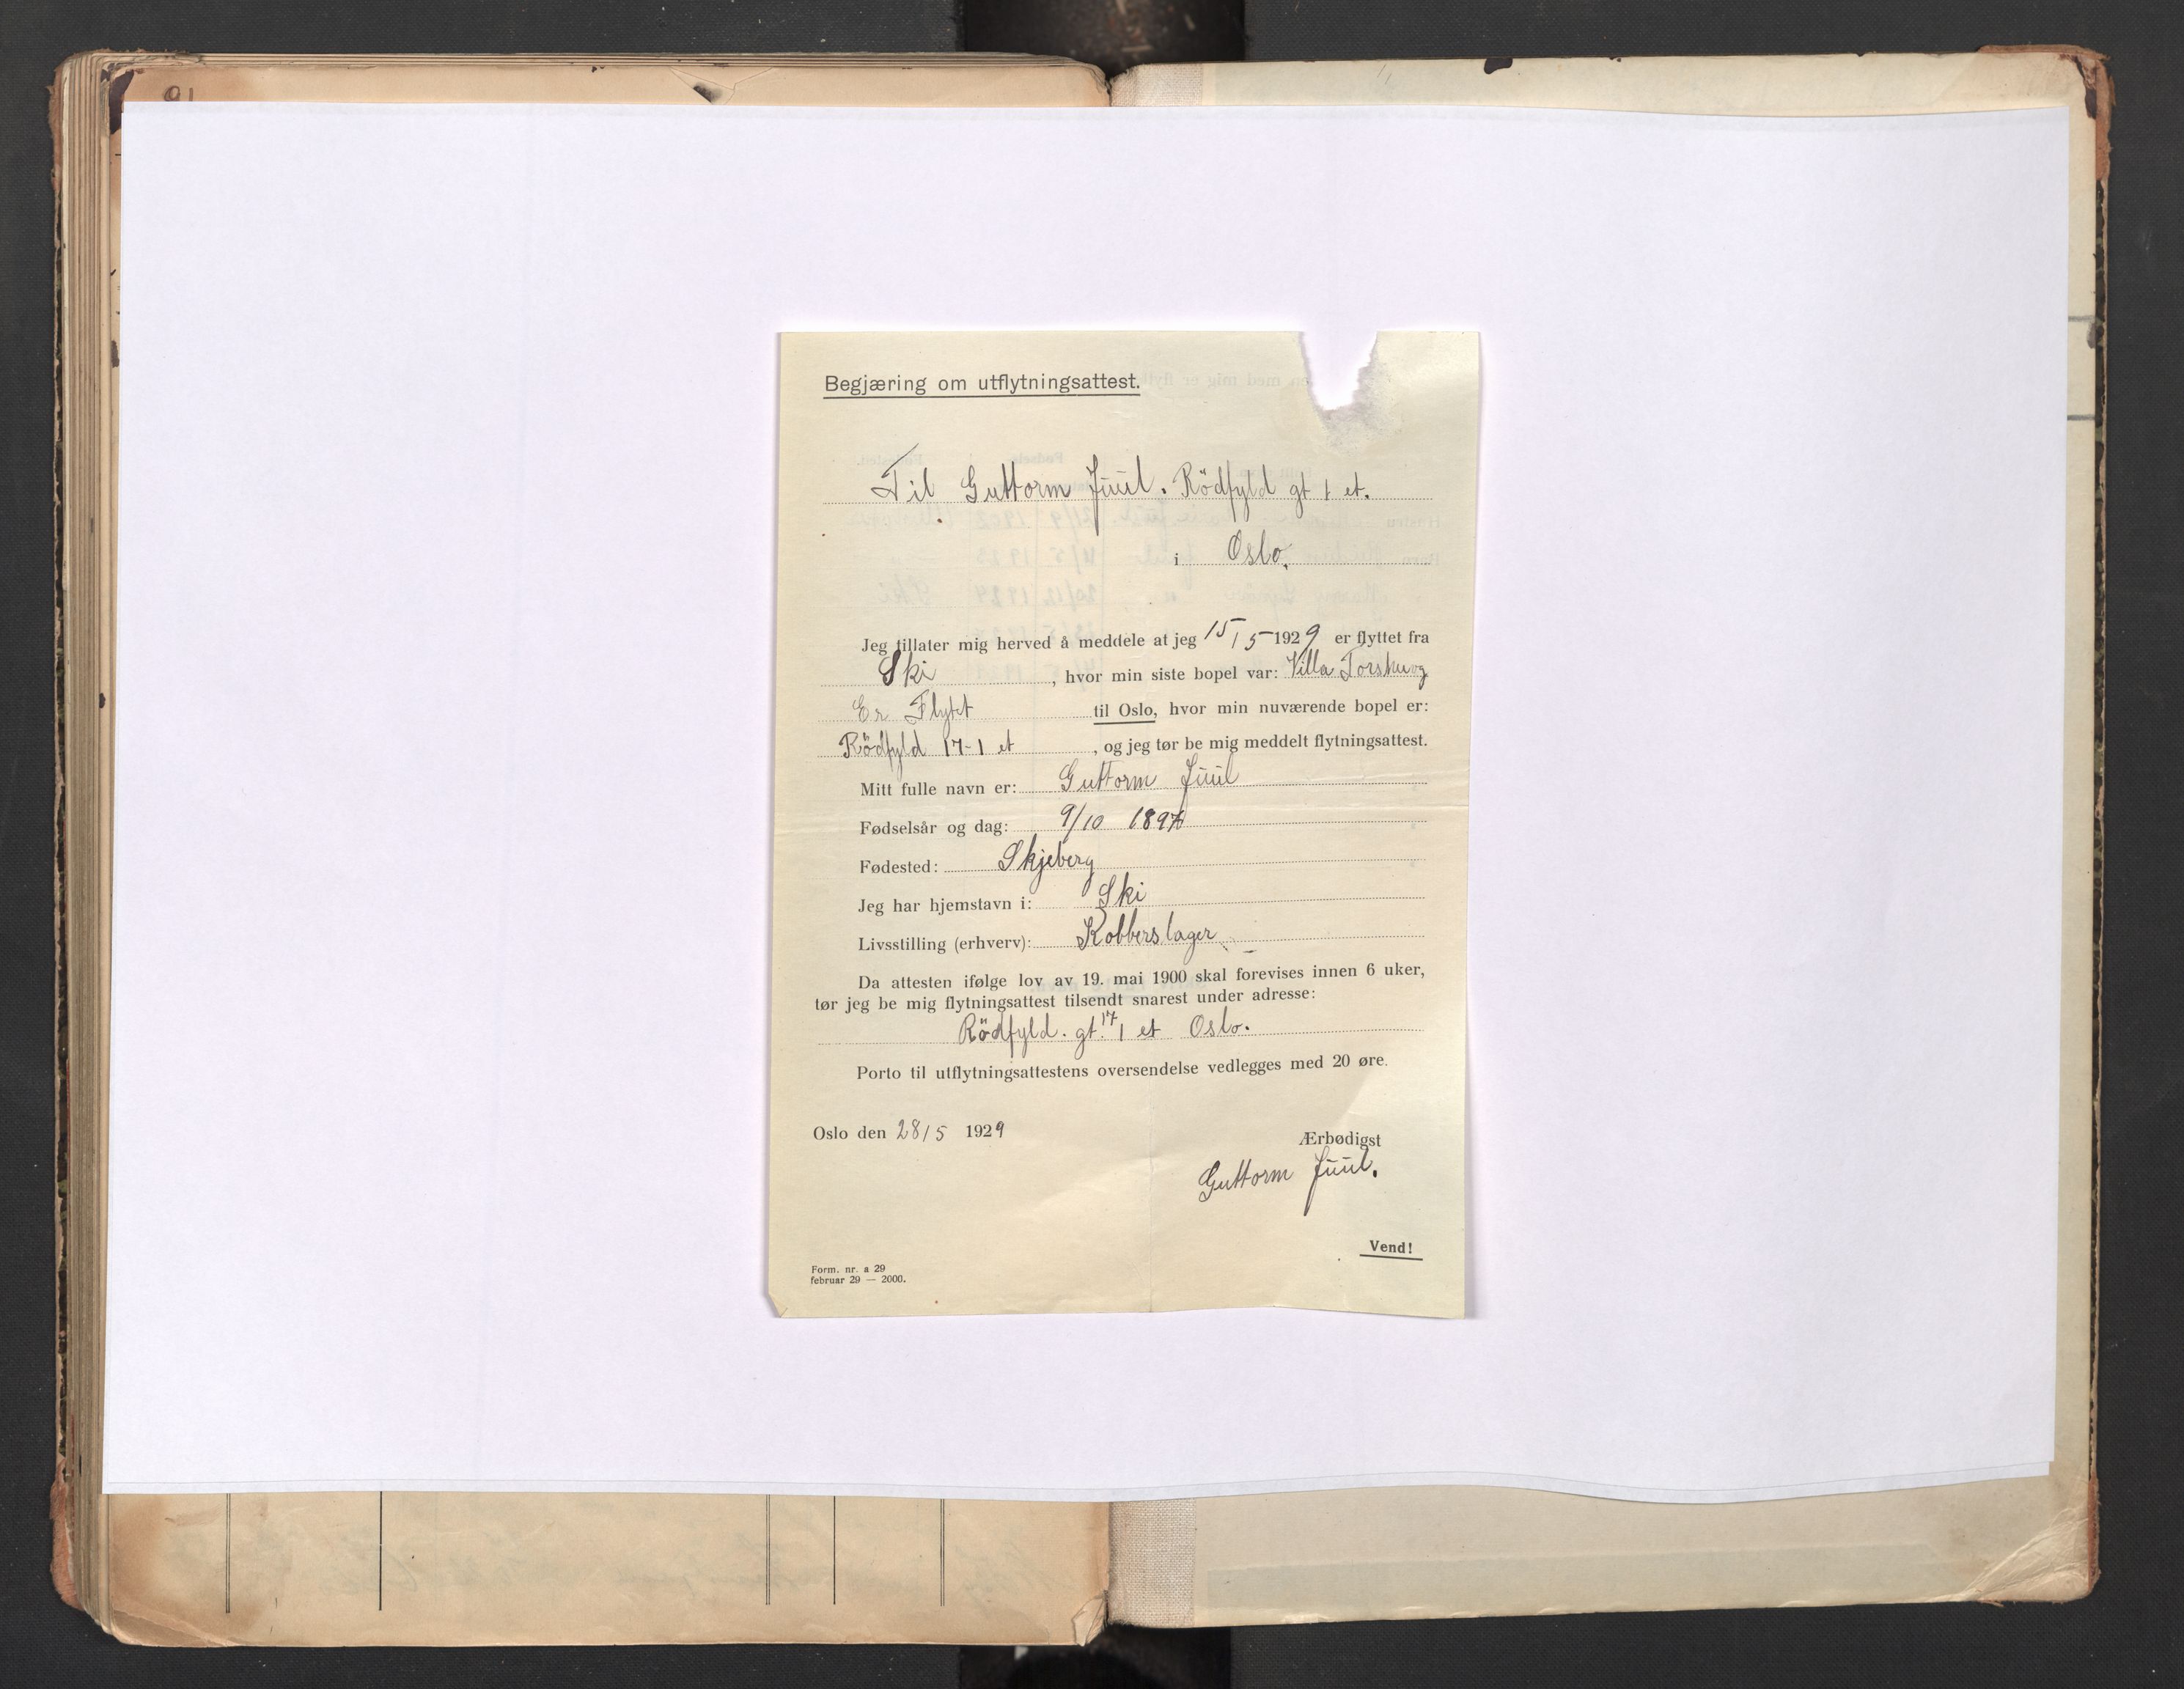 91
Begjæring om utflytningsattest.
Til Guttorm Juul. Rödfyld gt 1 et.
i Oslo.
Jeg tillater mig herved å meddele at jeg 15/5 1929 er flyttet fra
Ski, hvor min siste bopel var: Villa Torshaug
Er Flytet til Oslo, hvor min nuværende bopel er:
Rödfyld 17-1 et, og jeg tør be mig meddelt flytningsattest.
Mitt fulle navn er: Guttorm Juul
Fødselsår og dag: 9/10 189
Fødested: Skjeberg
Jeg har hjemstavn i: Ski
Livsstilling (erhverv): Kobberslager
Da attesten ifølge lov av 19. mai 1900 skal forevises innen 6 uker,
tør jeg be mig flytningsattest tilsendt snarest under adresse:
Rödfyld. gt. 17 1 et Oslo.
Porto til utflytningsattestens oversendelse vedlegges med 20 øre.
Oslo den 28/5 1929
Ærbødigst
Guttorm Juul.
Vend!
Form. nr. a 29
februar 29 — 2000.